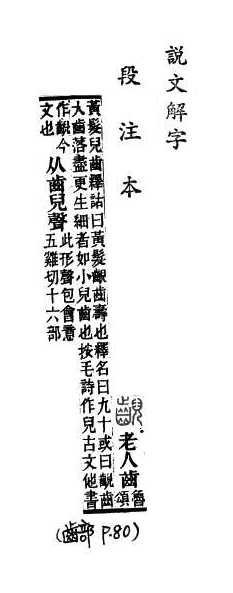 説文解字
段注本
齯 老人齒 魯頌
黃髮兒齒釋詁曰黃髮齯齒壽也釋名曰九十或曰齯齒
大齒落盡更生細者如小兒齒也按毛詩作兒古文他書
作齯今
文也
从齒兒聲
此形聲包會意
五雞切十六部
(齒部 P.80)